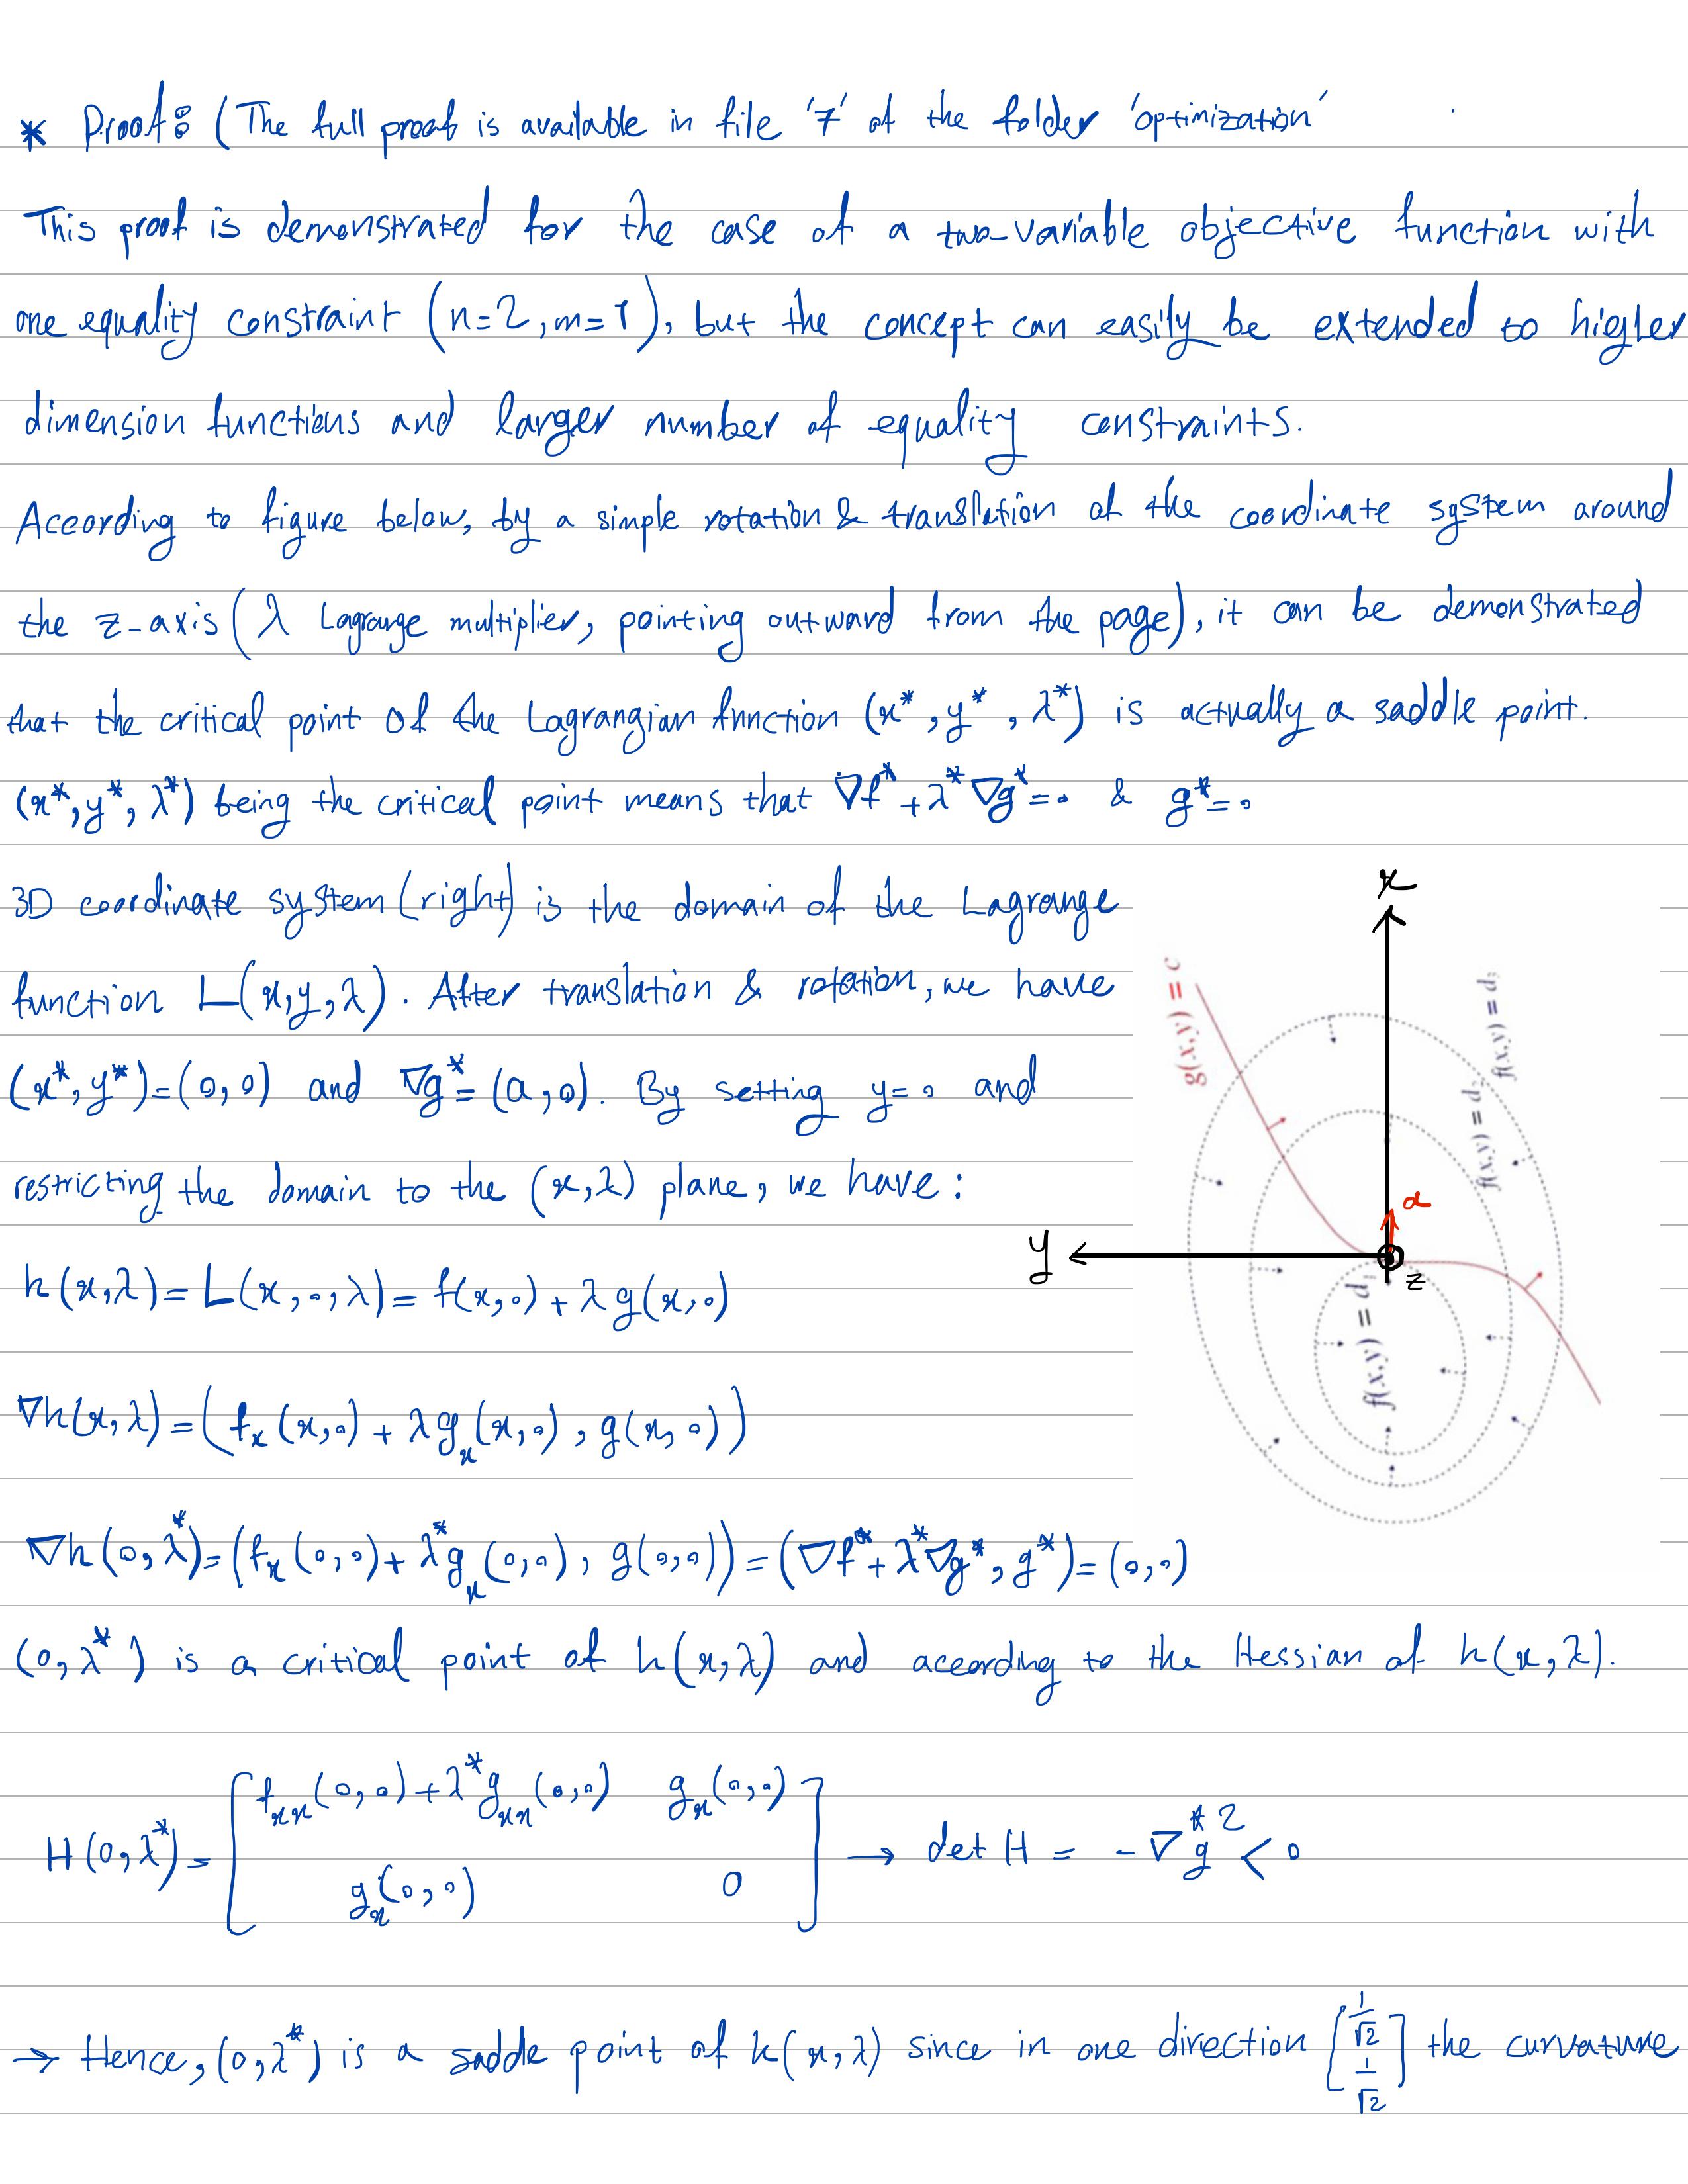 * Proof: (The full proof is available in file '7' of the folder 'optimization'
This proof is demonstrated for the case of a two-variable objective function with
one equality constraint (n=2, m=1), but the concept can easily be extended to higher
dimension functions and larger number of equality constraints.
According to figure below, by a simple rotation & translation of the coordinate system around
the z-axis (λ Lagrange multiplier, pointing outward from the page), it can be demonstrated
that the critical point of the Lagrangian function (x*, y*, λ*) is actually a saddle point.
(x*, y*, λ*) being the critical point means that ∇f* + λ*∇g* = 0 & g* = 0
3D coordinate system (right) is the domain of the Lagrange
function L(x,y,λ). After translation & rotation, we have
(x*, y*) = (0,0) and ∇g* = (a,0). By setting y=0 and
restricting the domain to the (x,λ) plane, we have:
h(x,λ) = L(x,0,λ) = f(x,0) + λg(x,0)
∇h(x,λ) = (f_x(x,0) + λg_x(x,0), g(x,0))
x
g(x,y) = c
f(x,y) = d₃
f(x,y) = d₂
a
y
z
f(x,y) = d₁
∇h(0,λ*) = (f_x(0,0) + λ*g_x(0,0), g(0,0)) = (∇f* + λ*∇g*, g*) = (0,0)
(0,λ*) is a critical point of h(x,λ) and according to the Hessian of h(x,λ).
H(0,λ*) = [f_xx(0,0) + λ*g_xx(0,0) g_x(0,0)
g_x(0,0) 0] → det H = -∇g*² < 0
→ Hence, (0,λ*) is a sadde point of h(x,λ) since in one direction [1/√2 1/√2] the curvature